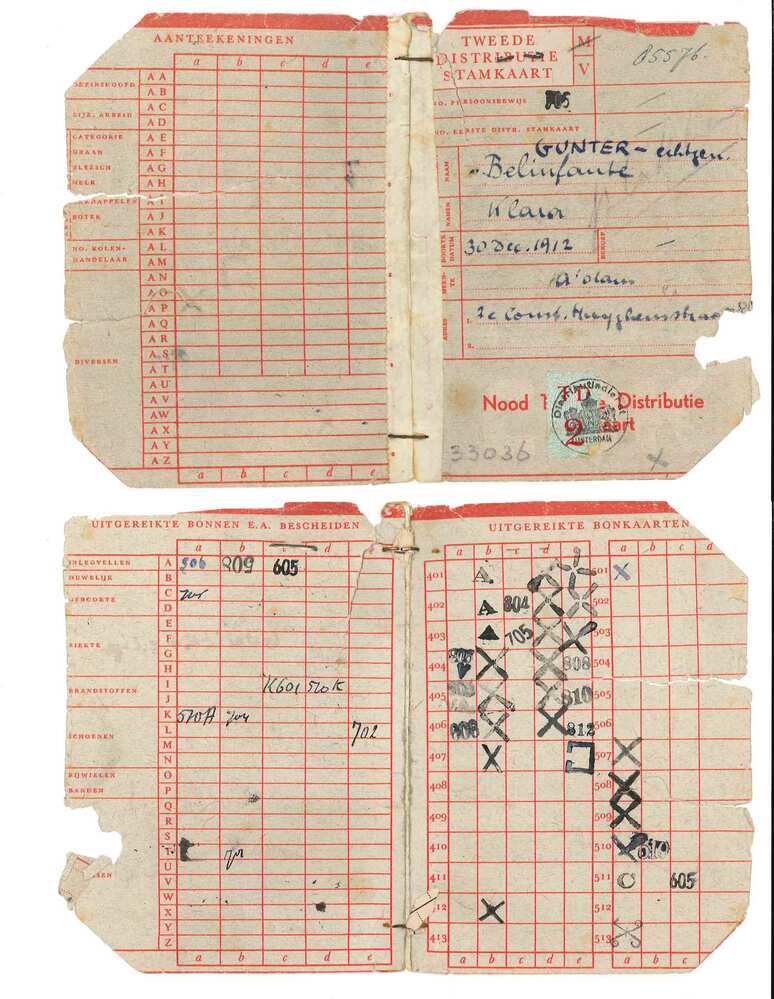 AANTEEKENINGEN
a b c d e
GEZINSHOOFD
BIJZ. ARBEID
CATEGORIE
GRAAN
VLEESCH
MELK
BOTER
NO. KOLEN-
HANDELAAR
DIVERSEN
AA
AB
AC
AD
AE
AF
AG
AH
AJ
AK
AL
AM
AN
AO
AP
AQ
AR
AS
AT
AU
AV
AW
AX
AY
AZ
a b c d e
TWEEDE
DISTRIBUTIE
STAMKAART
M
V
85576.
NO. PERSOONSBEWIJS
705
NO. EERSTE DISTR. STAMKAART
GUNTER - echtgen.
NAAM
Belinfante
NAMEN
Klara
GEBOORTE
DATUM
30 Dec. 1912
BEROEP
A'dam
ADRES
1.
2e Const. Huyghensstraat
2.
Nood 1 Distributie
kaart
Distributiedienst
AMSTERDAM
33036
UITGEREIKTE BONNEN E.A. BESCHEIDEN
a b c d e
INLEGVELLEN
HUWELIJK
GEBOORTE
ZIEKTE
BRANDSTOFFEN
SCHOENEN
RIJWIELEN
BANDEN
A 506 809 605
B
C
D
E
F
G
H
I
J K601 510K
K 510A 704
L 702
M
N
O
P
Q
R
S
T
U
V
W
X
Y
Z
a b c d e
UITGEREIKTE BONKAARTEN
a b c d e a b c d
401 A 501 X
402 A 804 502
403 705 503
404 X 808 504
405 810 505
406 808 812 506
407 X 507 X
408 508
409 509
410 510
411 511 605
412 X 512
413 513
a b c d e a b c d